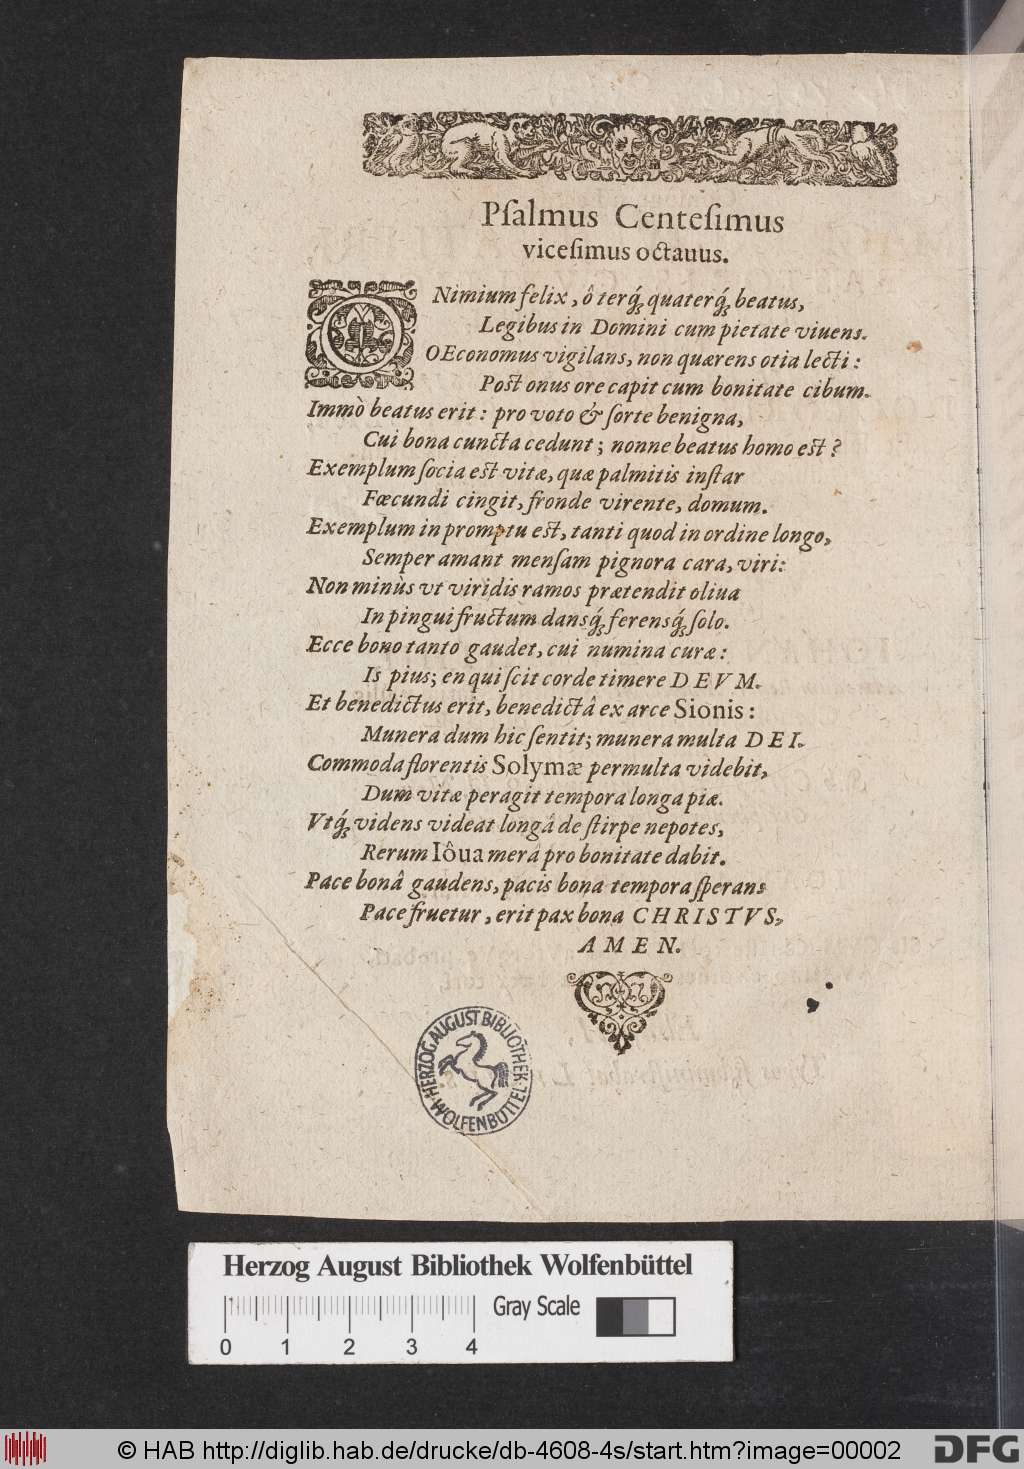 Pſalmus Centeſimus
viceſimus octauus.
O Nimium felix, ô terq́; quaterq́; beatus,
Legibus in Domini cum pietate viuens.
OEconomus vigilans, non quærens otia lecti:
Poſt onus ore capit cum bonitate cibum.
Immò beatus erit: pro voto & ſorte benigna,
Cui bona cuncta cedunt; nonne beatus homo eſt?
Exemplum ſocia eſt vitæ, quæ palmitis inſtar
Fœcundi cingit, fronde virente, domum.
Exemplum in promptu eſt, tanti quod in ordine longo,
Semper amant menſam pignora cara, viri:
Non minùs vt viridis ramos prætendit oliua
In pingui fructum dansq́; ferensq́; ſolo.
Ecce bono tanto gaudet, cui numina curæ:
Is pius; en qui ſcit corde timere DEVM.
Et benedictus erit, benedictâ ex arce Sionis:
Munera dum hic ſentit; munera multa DEI.
Commoda florentis Solymæ permulta videbit,
Dum vitæ peragit tempora longa piæ.
Vtq́; videns videat longâ de ſtirpe nepotes,
Rerum Iôua mera pro bonitate dabit.
Pace bonâ gaudens, pacis bona tempora ſperans
Pace fruetur, erit pax bona CHRISTVS,
AMEN.
HERZOG AUGUST BIBLIOTHEK
WOLFENBÜTTEL
Herzog August Bibliothek Wolfenbüttel
Gray Scale
0 1 2 3 4
© HAB http://diglib.hab.de/drucke/db-4608-4s/start.htm?image=00002
DFG